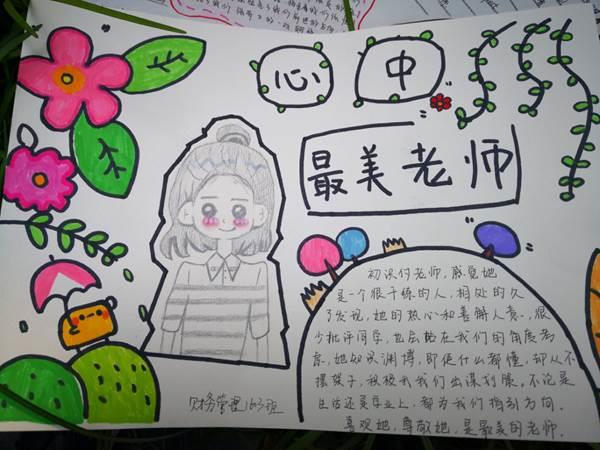 心中
最美老师
初识付老师,感觉她
是一个很干练的人,相处的久
了发现,她的热心和善解人意,很
少批评同学,也总站在我们的角度考
虑,她知识渊博,即使什么都懂,却从不
摆架子,积极和我们出谋划策,不论是
生活还是学业上,都为我们指引方向。
喜欢她,尊敬她,是最美的老师。
财务管理163班